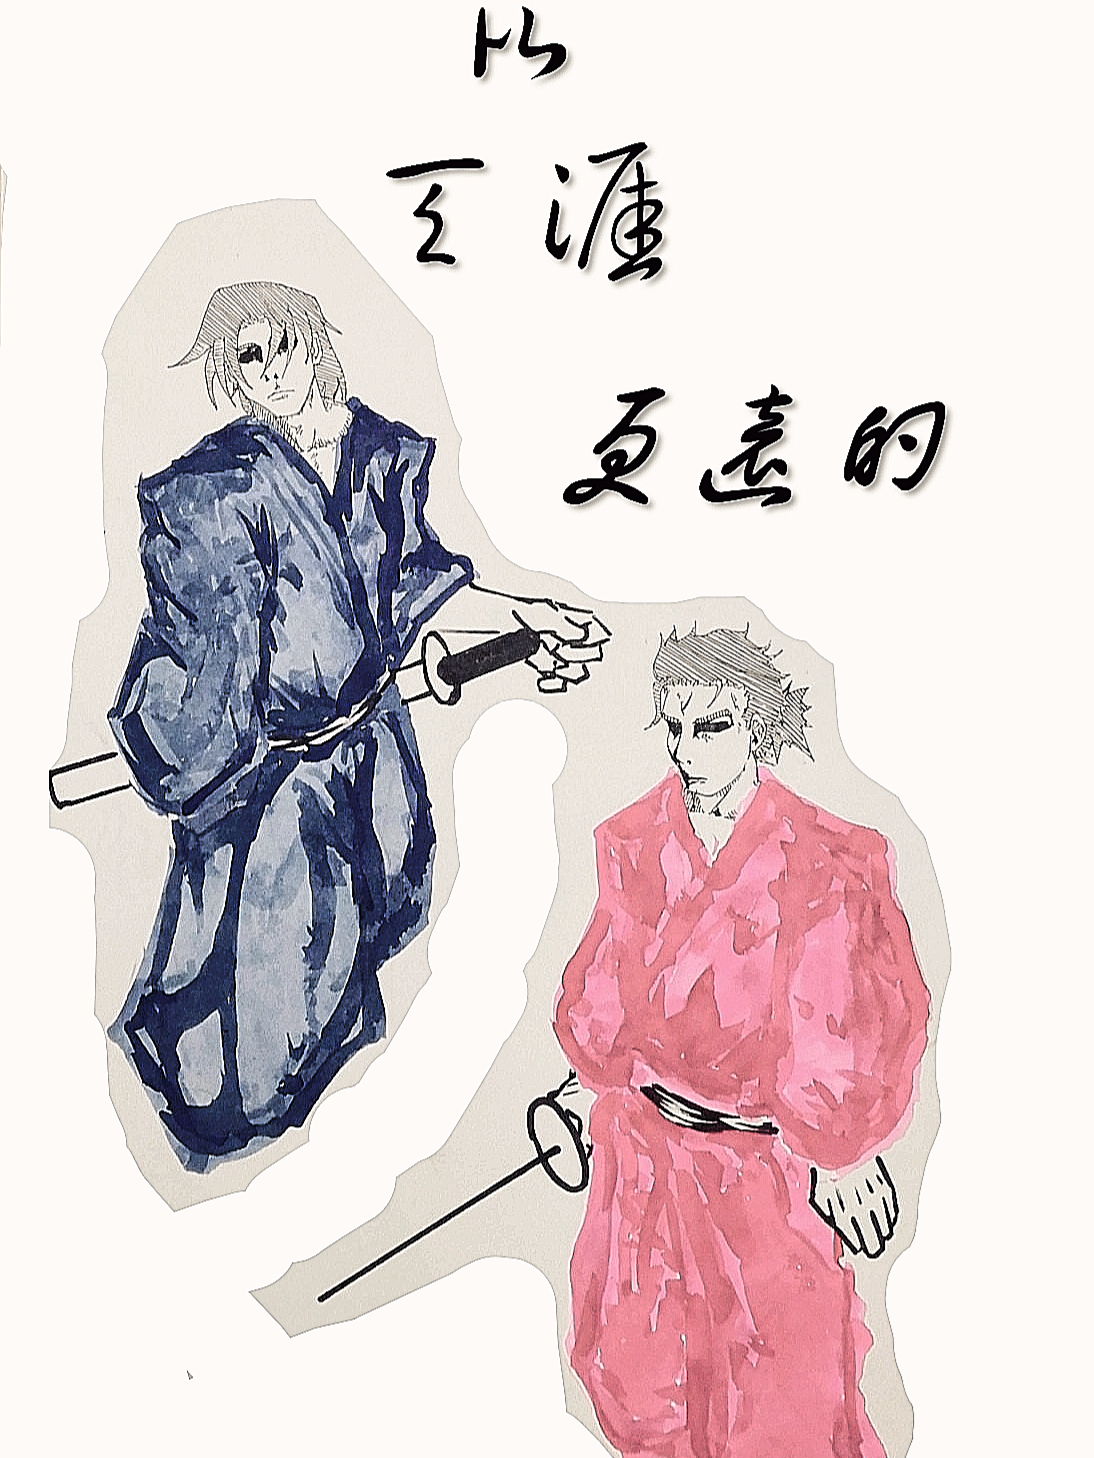 比
天涯
更遠的